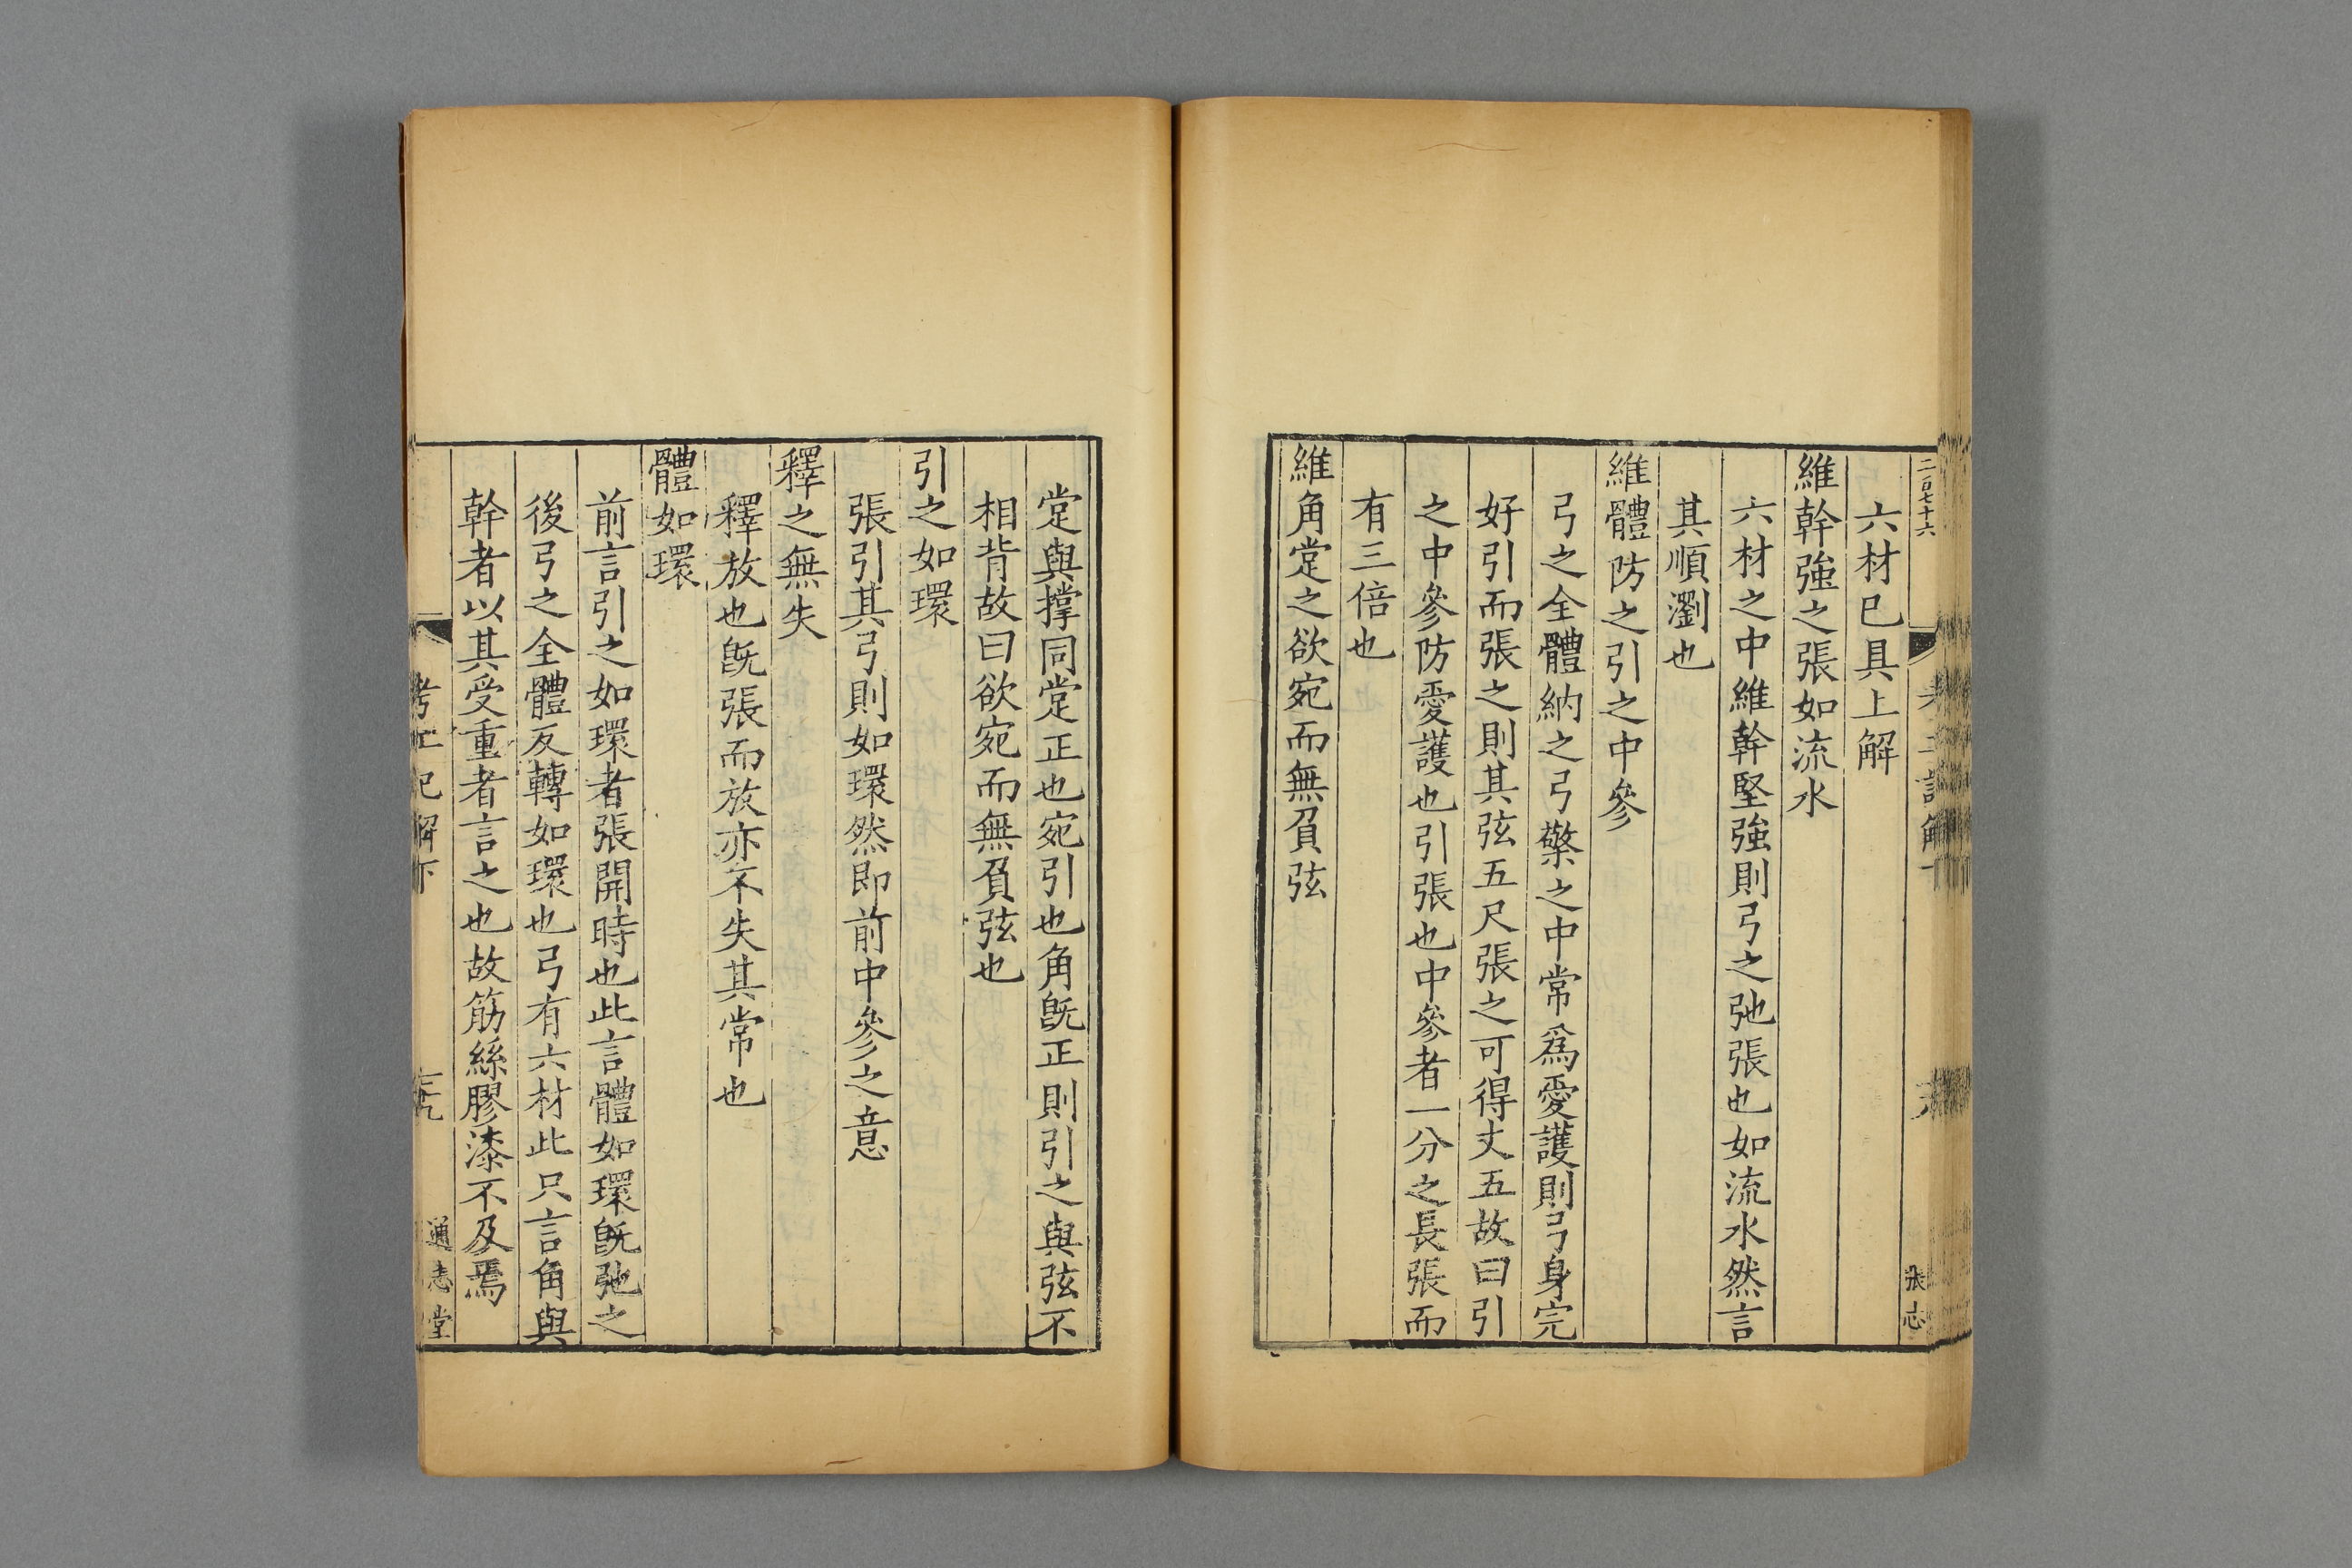 二百七十六
張志
六材已具上解
維幹強之張如流水
六材之中維幹堅強則弓之弛張也如流水然言
其順瀏也
維體防之引之中參
弓之全體納之弓檠之中常爲愛護則弓身完
好引而張之則其弦五尺張之可得丈五故曰引
之中參防愛護也引張也中參者一分之長張而
有三倍也
維角定之欲宛而無負弦
定與撑同定正也宛引也角旣正則引之與弦不
相背故曰欲宛而無負弦也
引之如環
張引其弓則如環然即前中參之意
釋之無失
釋放也旣張而放亦不失其常也
體如環
前言引之如環者張開時也此言體如環旣弛之
後弓之全體反轉如環也弓有六材此只言角與
幹者以其受重者言之也故筋絲膠漆不及焉
考工記解下
通志堂